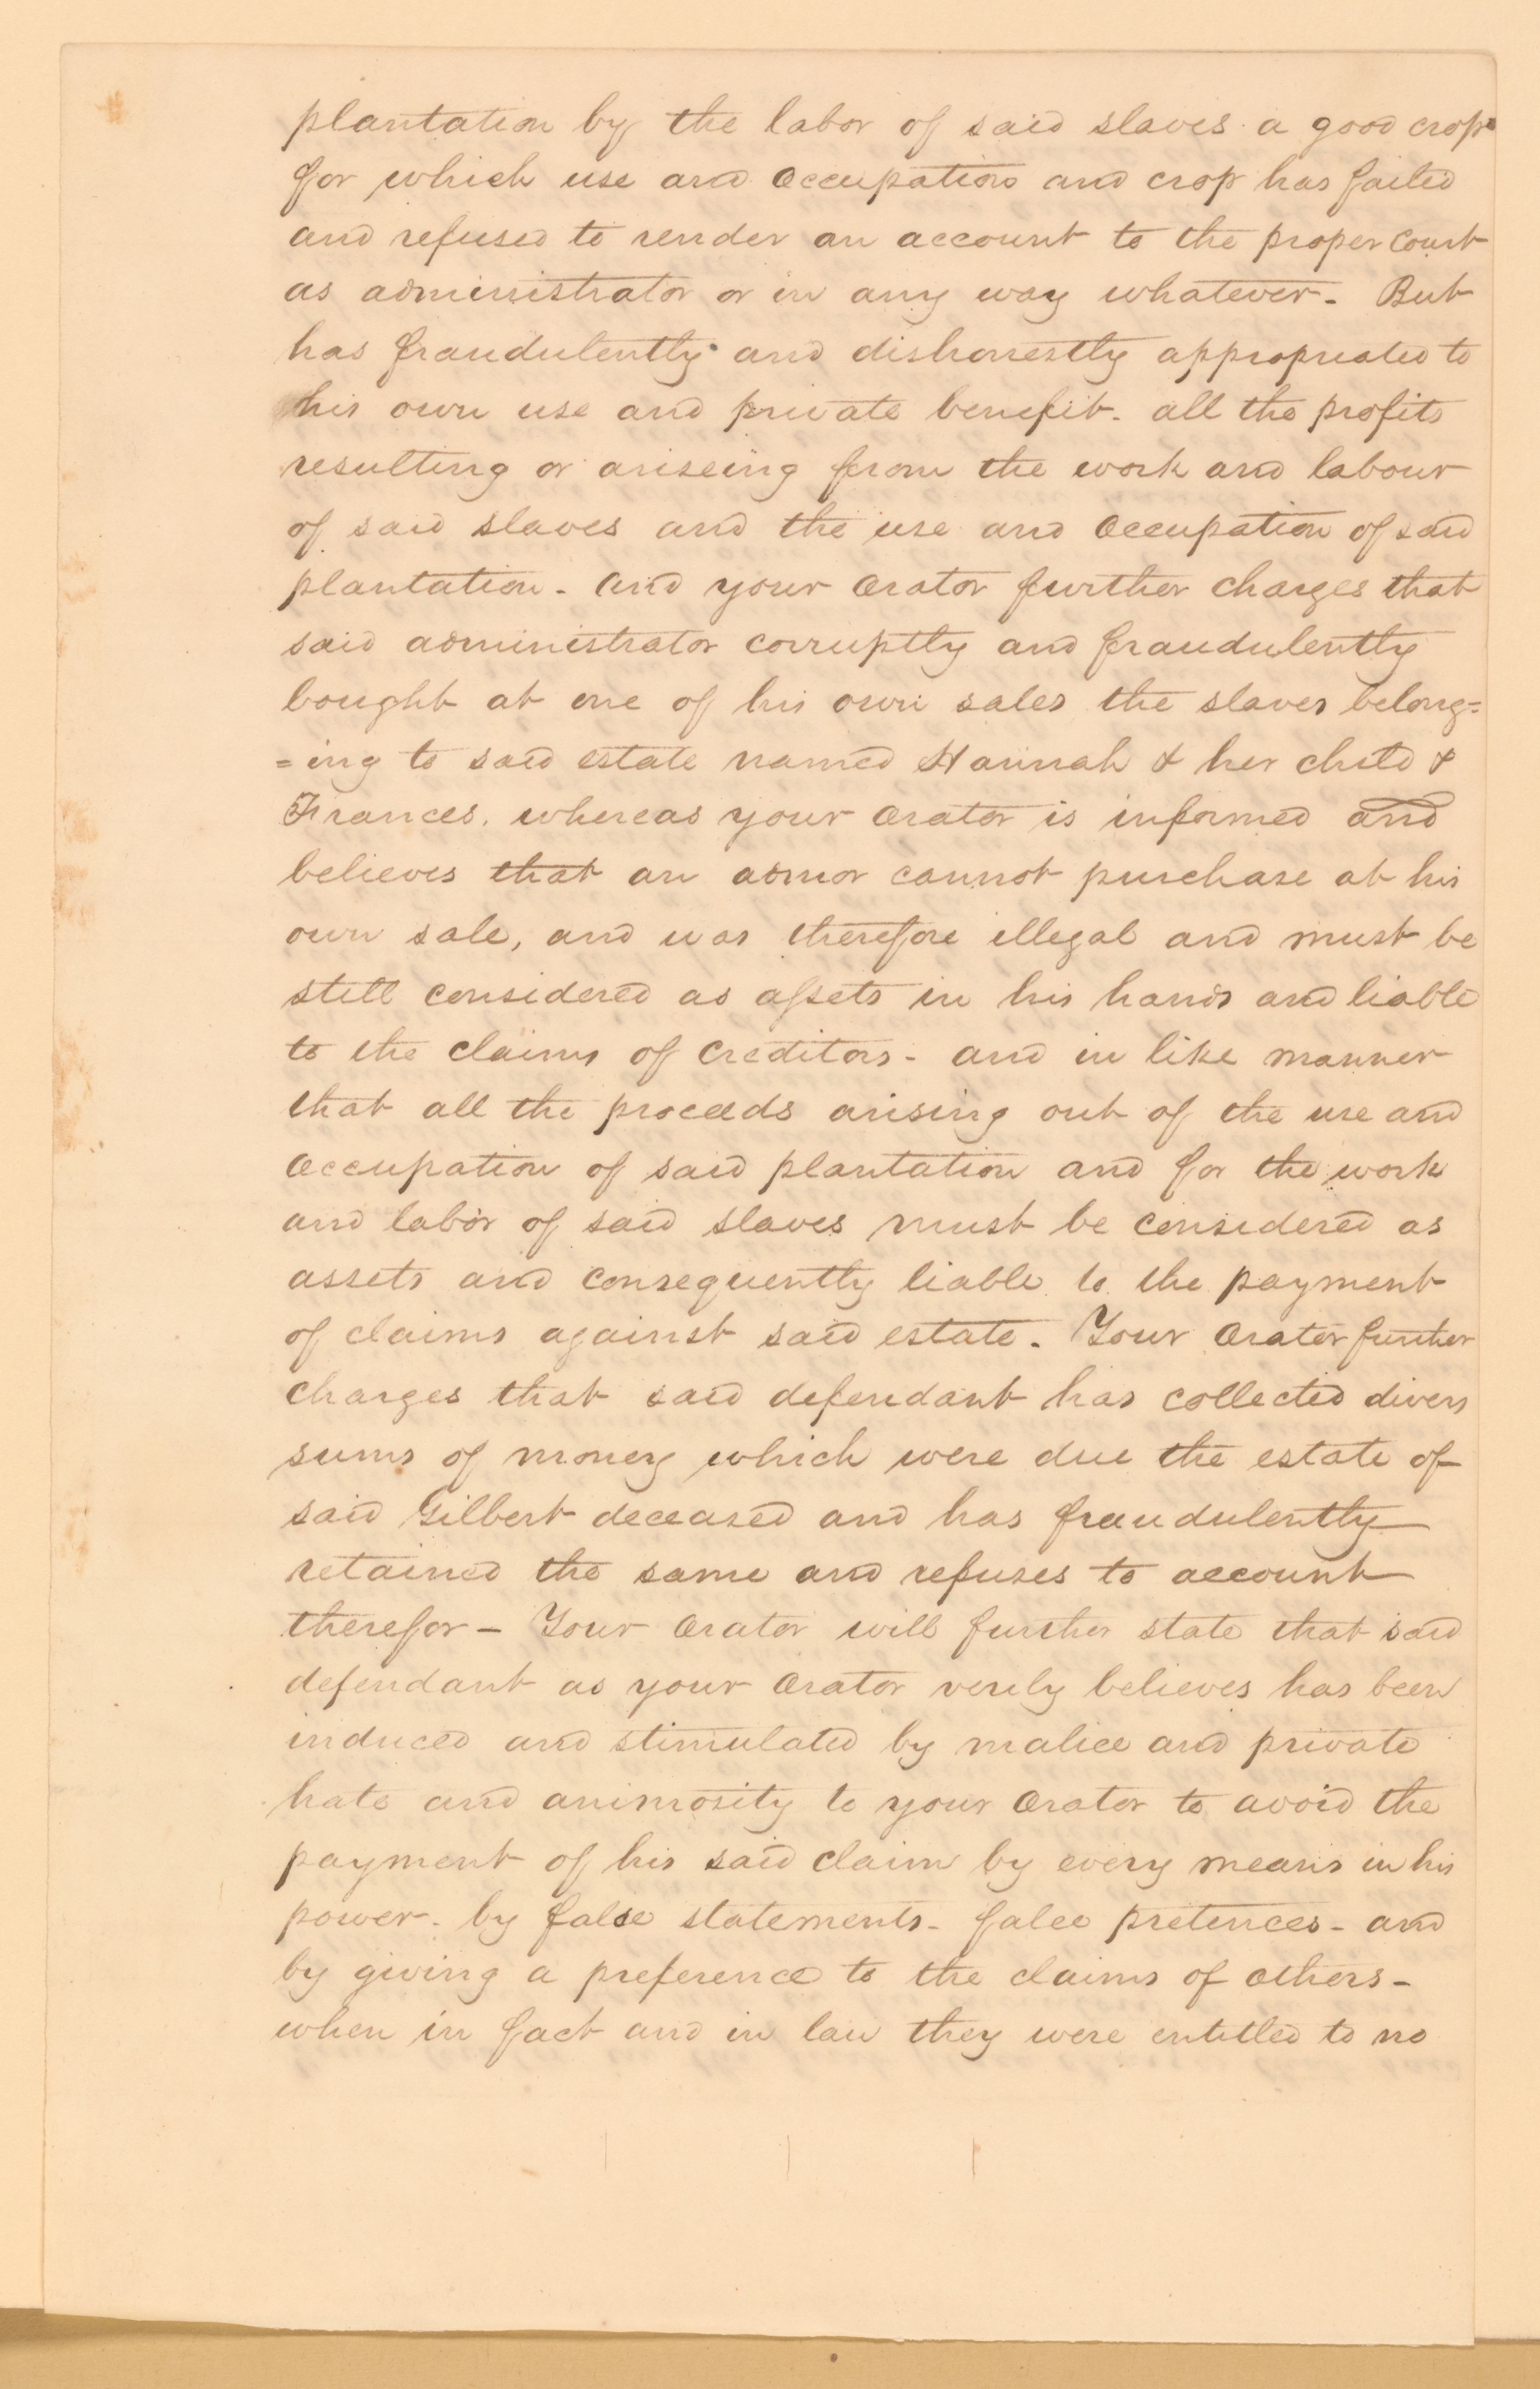 plantation by the labor of said slaves a good crop
for which use and occupation and crop has failed
and refused to render an account to the proper court
as administrator or in any way whatever - But
has fraudulently and dishonestly appropriated to
his own use and private benefit - all the profits
resulting or ariseing from the work and labour
of said slaves and the use and occupation of said
plantation - And your orator further charges that
said administrator corruptly and fraudulently
bought at one of his own sales the slaves belong=
=ing to said estate named Hannah & her child &
Frances, whereas your orator is informed and
believes that an admor cannot purchase at his
own sale, and was therefore illegal and must be
still considered as assets in his hands and liable
to the claims of creditors - and in like manner
that all the proceeds arising out of the use and
occupation of said plantation and for the work
and labor of said slaves must be considered as
assets and consequently liable to the payment
of claims against said estate - Your orator further
charges that said defendant has collected divers
sums of money which were due the estate of
said Gilbert deceased and has fraudulently
retained the same and refuses to account
therefor - Your orator will further state that said
defendant as your orator verily believes has been
induced and stimulated by malice and private
hate and animosity to your orator to avoid the
payment of his said claim by every means in his
power - by false statements - false pretences - and
by giving a preference to the claims of others -
when in fact and in law they were entitled to no